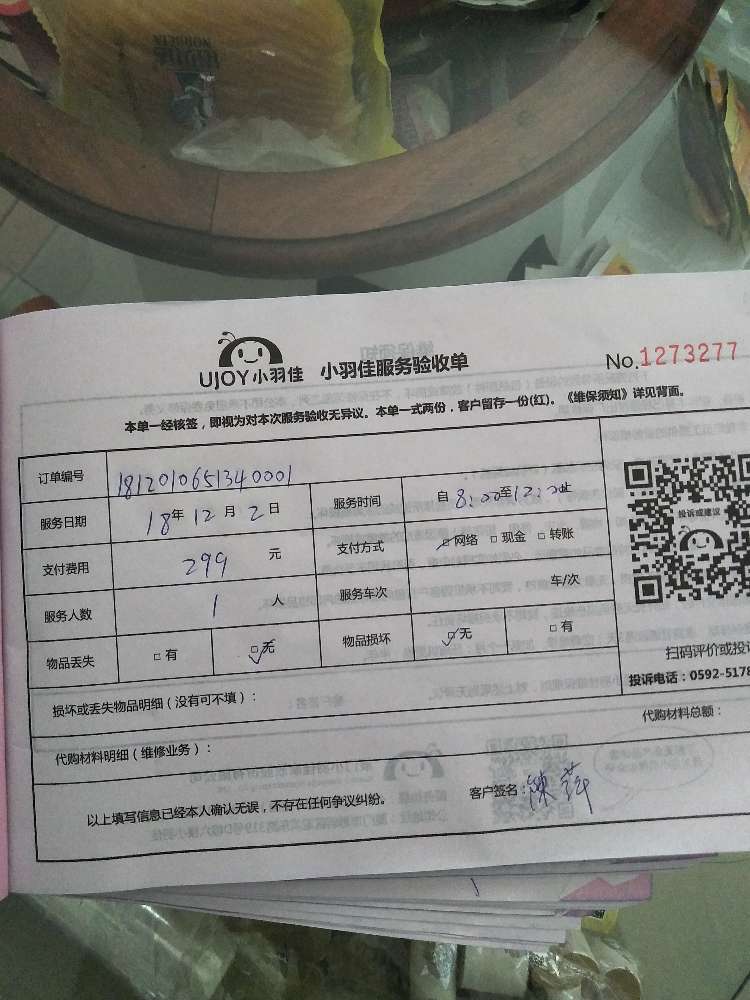 UJOY小羽佳 小羽佳服务验收单 No.1273277
本单一经核签，即视为对本次服务验收无异议。本单一式两份，客户留存一份(红)。《维保须知》详见背面。
订单编号 1812010651340001
服务日期 18年 12月 2日 服务时间 自 8:00至12:00止
支付费用 299 元 支付方式 网络 现金 转账
服务人数 1 人 服务车次 车/次
物品丢失 有 无 物品损坏 无 有
损坏或丢失物品明细（没有可不填）：
代购材料明细（维修业务）： 代购材料总额：
以上填写信息已经本人确认无误，不存在任何争议纠纷。 客户签名：陈萍
投诉或建议
扫码评价或投
投诉电话：0592-5178